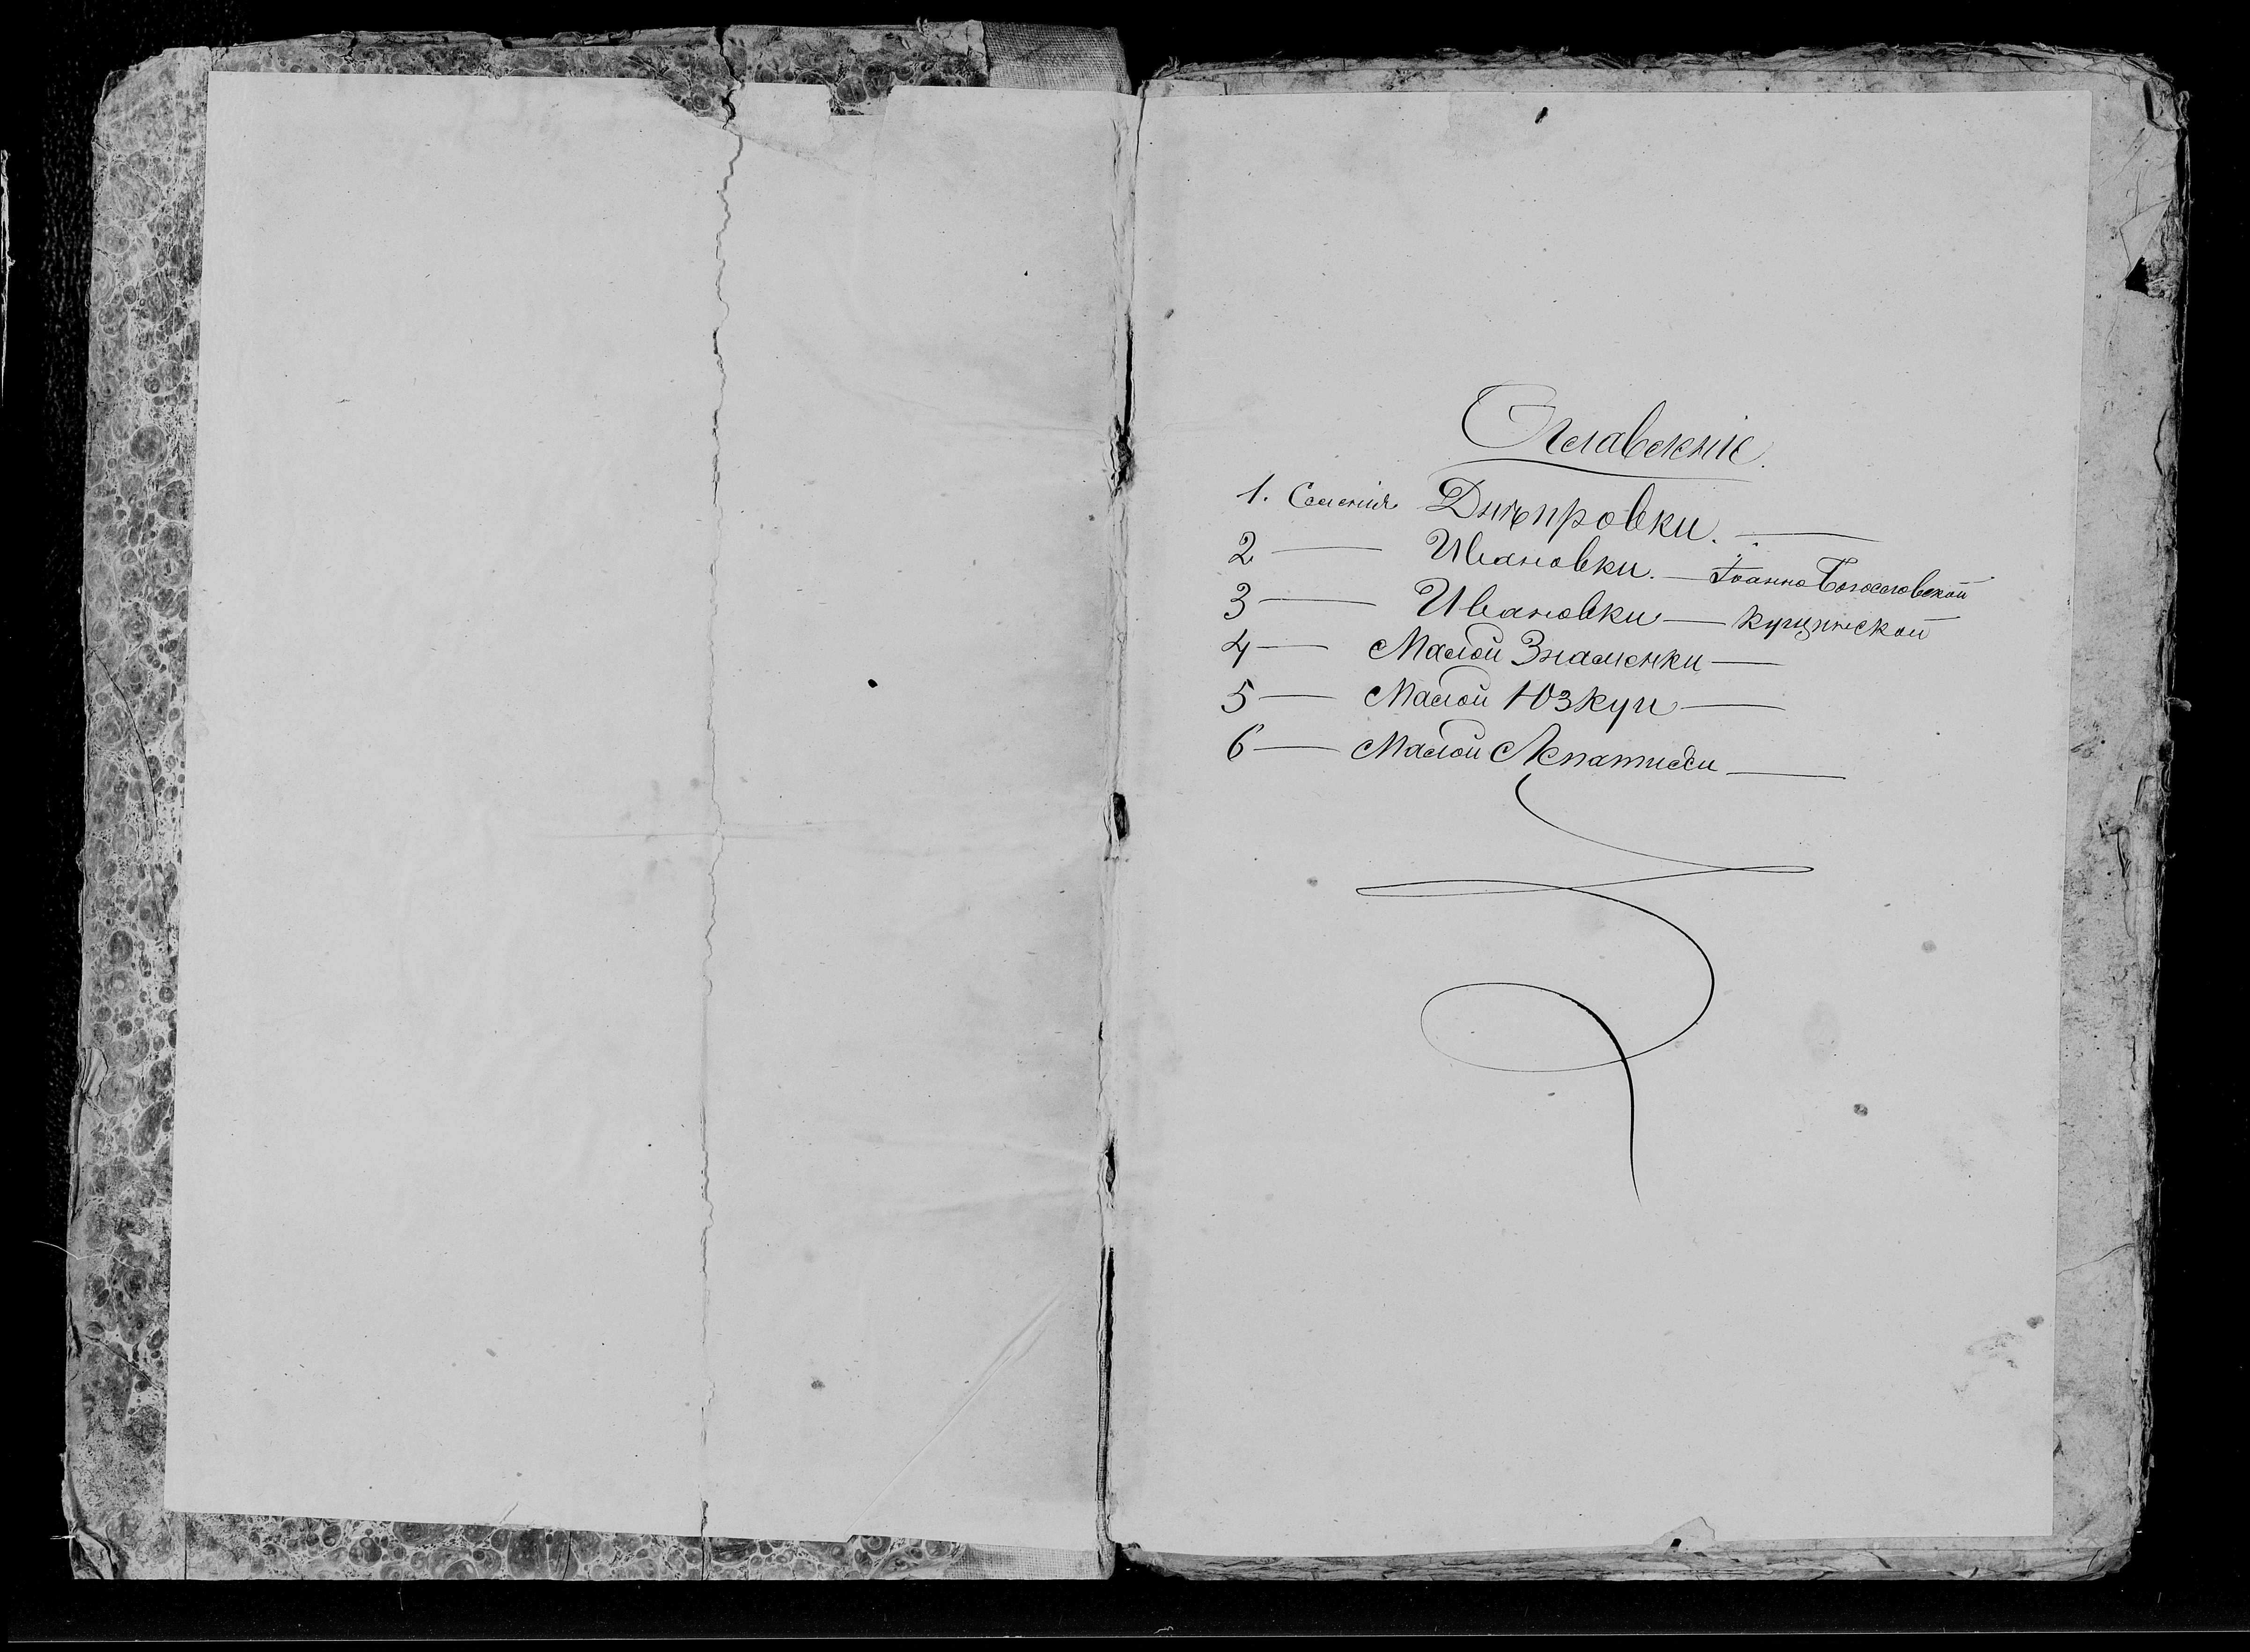 Оглавленіе.
1. Селенія Днѣпровки. —
2 — Ивановки. — Іоанно Богословской
3 — Ивановки —
4 — Малой Знаменки —
5 — Малой Юзкуи —
6 — Малой Лепатихи —